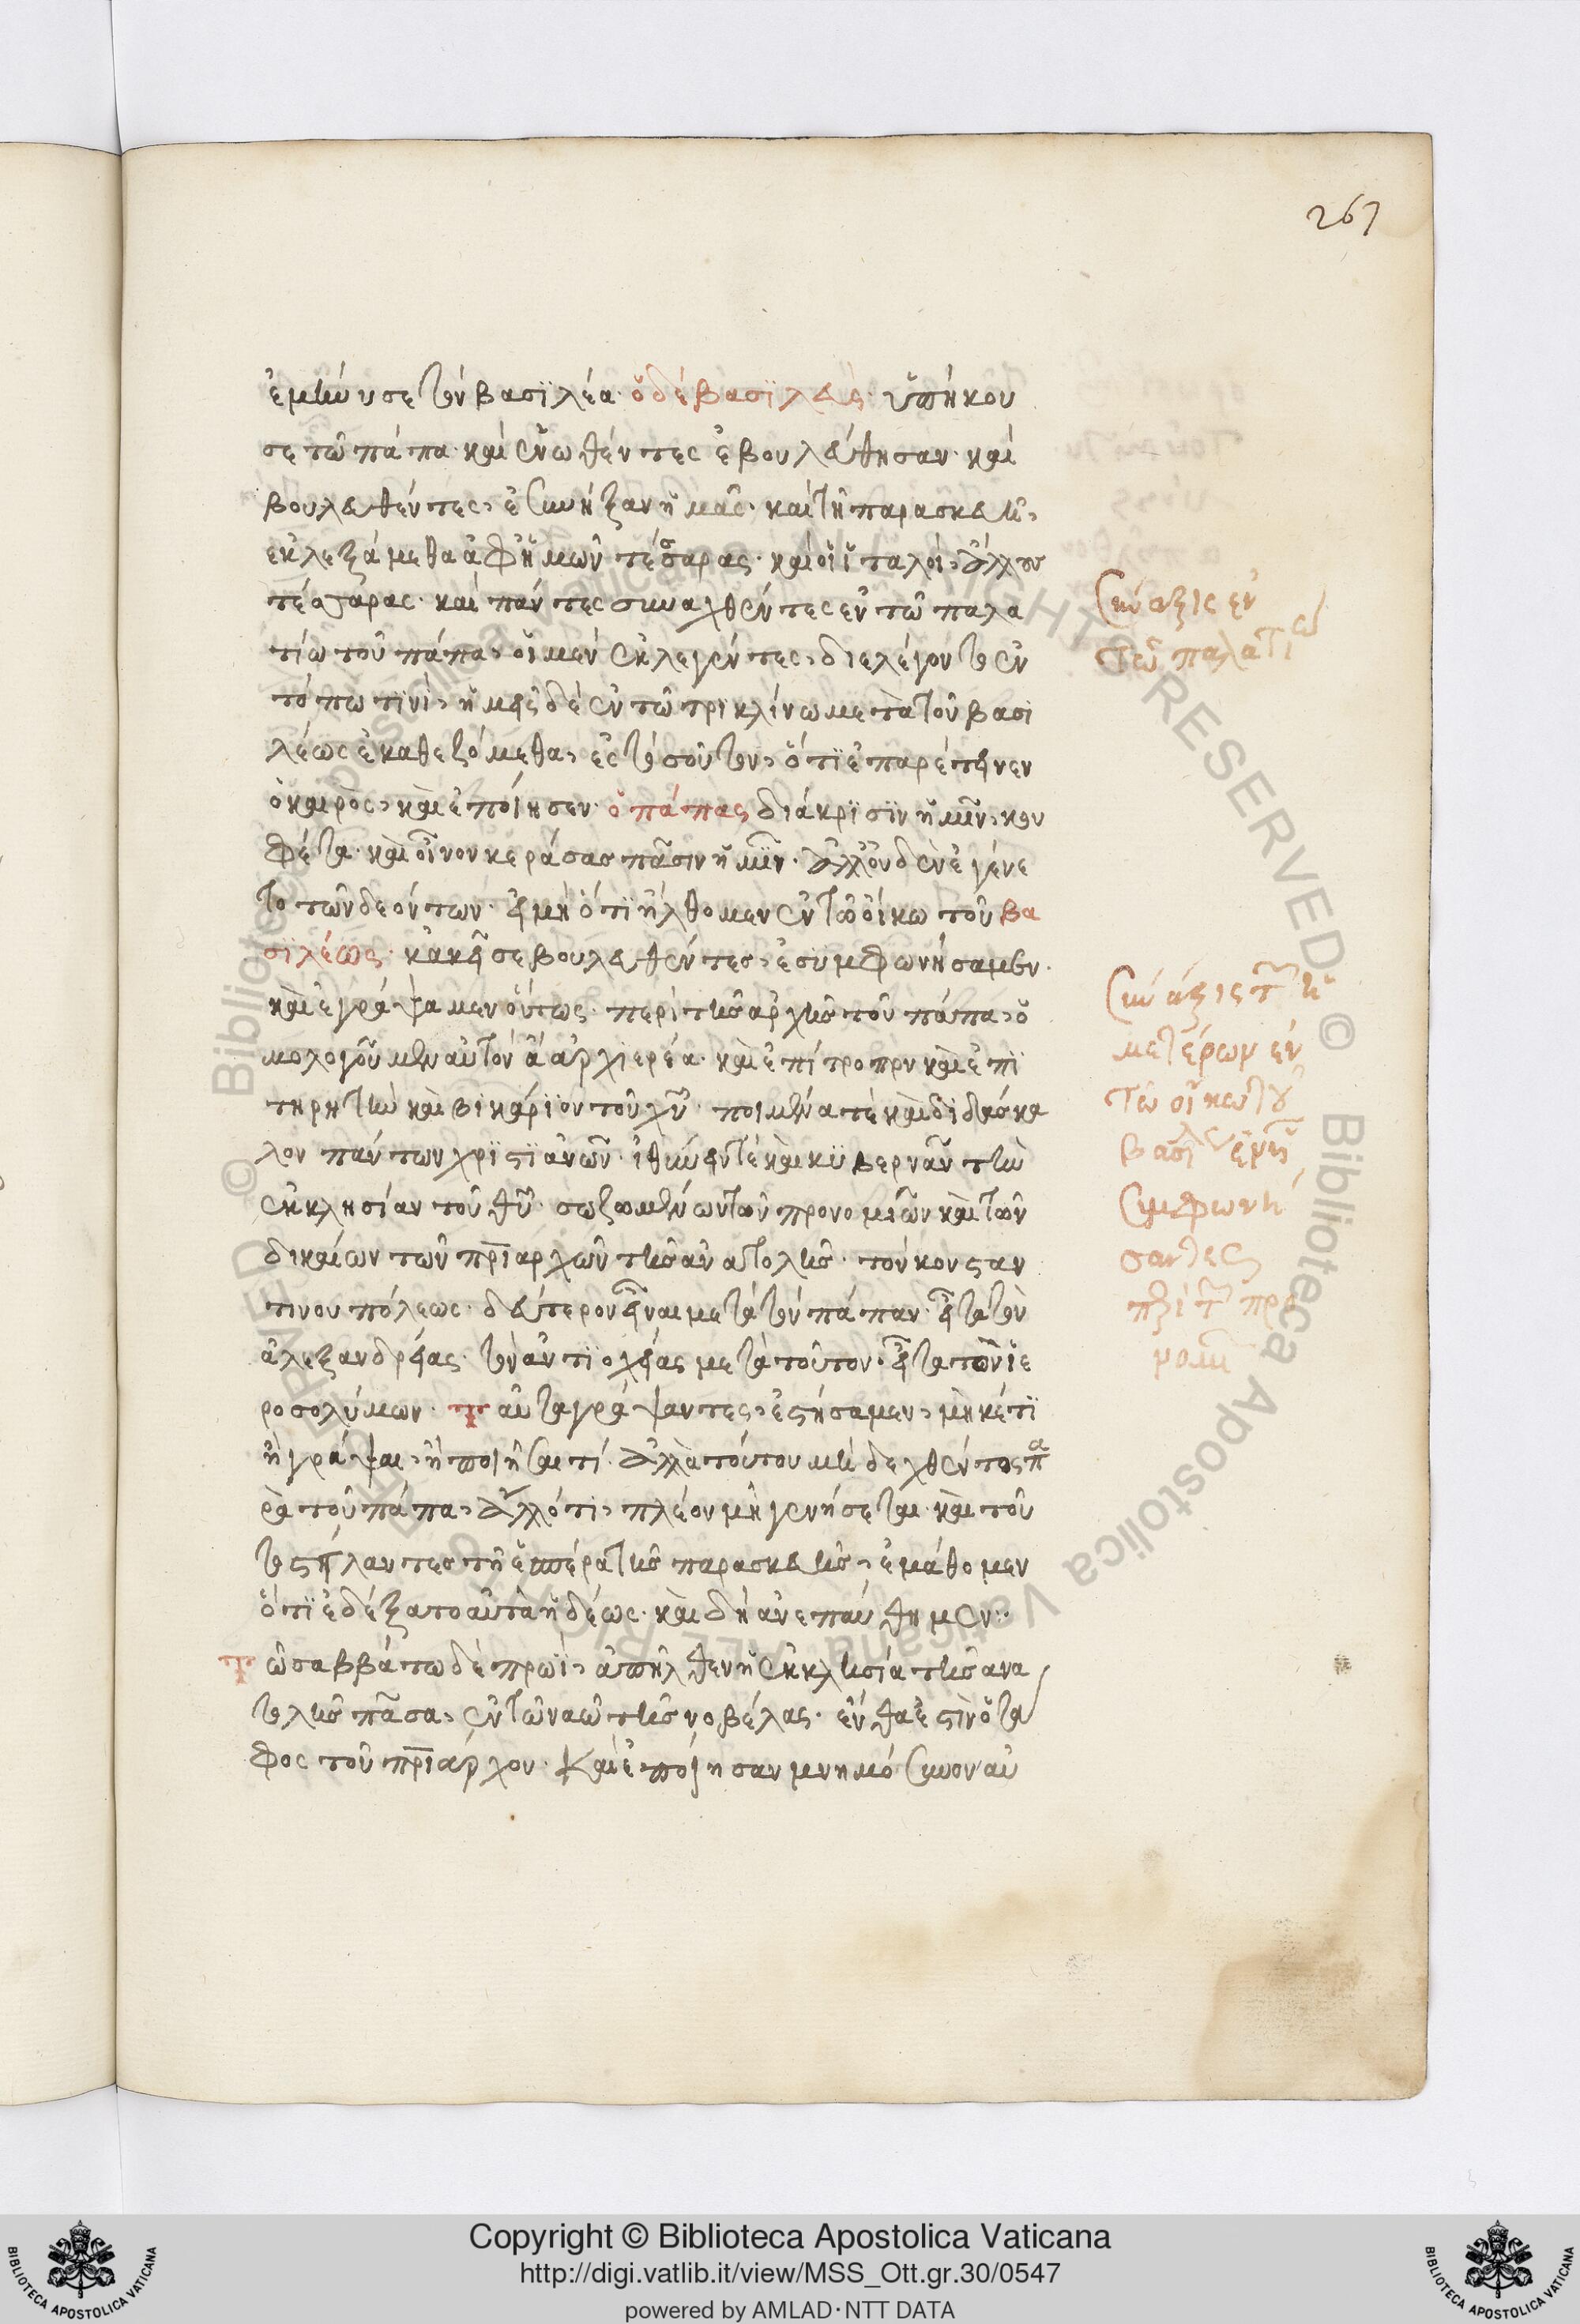 267
ἐμήνυσε τὸν βασϊλέα· ὁ δὲ βασϊλεὺς· ὑπήκου
σε τῶ πάπα· καὶ ἑνωθέντες ἐβουλεύθησαν· καὶ
βουλευθέντες, ἐσυνῆξαν ἡμᾶς· καὶ τῆ παρασκευῆ,
ἐκλεξάμεθα ἀφ' ἡμῶν τέσσαρας· καὶ οἱ ἰταλοὶ, ἄλλους
τέσσαρας· καὶ πάντες συναχθέντες ἐν τῶ παλα
τίω τοῦ πάπα, οἱ μὲν ἐκλεγέντες, διελέγοντο ἐν
τόπω τινί, ἡμεῖς δὲ ἐν τῶ τρικλίνω μετὰ τοῦ βασι
λέως ἐκαθεζόμεθα, ἐς τοσοῦτον, ὅτι ἐπαρέτεινεν
ὁ καιρὸς, καὶ ἐποίησεν· ὁ πάπας διάκρϊσϊν ἡμῖν, κον
φέτα· καὶ οἶνον κεράσας πᾶσιν ἡμῖν· ἄλλο οὐδὲν ἐγένε
το τῶν δεόντων· εἰ μὴ ὅτι ἤλθομεν ἐν τῶ οἴκω τοῦ βα
σϊλέως· κἀκεῖσε βουλευθέντες, ἐσυμφωνήσαμεν·
καὶ ἐγράψαμεν οὕτως· περὶ τῆς ἀρχῆς τοῦ πάπα, ὁ
μολογοῦμεν αὐτὸν ἄ ἀρχϊερέα· καὶ ἐπίτροπον καὶ ἐπι
τηρητὴν καὶ βικάριον τοῦ χυ· ποιμένα τὲ καὶ διδάσκα
λον πάντων χριστϊανῶν· ἰθύνειν τὲ καὶ κϋβερνᾶν τὴν
ἐκκλησίαν τοῦ θυ· σωζομένων τῶν προνομιῶν καὶ τῶν
δικαίων τῶν πριαρχῶν τῆς ἀνατολῆς· τὸν κονσταν
τινουπόλεως· δεύτερον εἶναι μετὰ τὸν πάπαν· εἶτα τὸν
ἀλεξανδρείας· τὸν ἀντϊοχείας μετὰ τοῦτον· εἶτα τῶν ἱε
ροσολύμων· ταῦτα γράψαντες, ἐστήσαμεν, μηκέτϊ
ἢ γράψαι, ἢ ποιῆσαι τί· ἀλλὰ τούτου μὴ δεχθέντος πα
ρὰ τοῦ πάπα, ἄλλό τι, πλέον μὴ γενήσεται· καὶ τοῦ
το στείλαντες τῆ ἑσπέρα τῆς παρασκευῆς, ἐμάθομεν
ὅτι ἐδέξατο αὐτὰ ἡδέως· καὶ δὴ ἀνεπαύθημεν:·
Τῶ σαββάτω δὲ πρωΐ, ἀπῆλθεν ἡ ἐκκλησία τῆς ανα
τολῆς πᾶσα, ἐν τῶ ναῶ τῆς νοβέλας· ἔνθα ἐστὶν ὁ τά
φος τοῦ πριάρχου· Καὶ ἐποίησαν μνημόσυνον αὐ
Σύναξις ἐν
τῶ παλατίω
Σύναξις τῶν ἡ
μετέρων ἐν
τῶ οἴκω τοῦ
βασιλέως
Συμφωνή
σαντες
περὶ τῶν προ
νομίων
Copyright © Biblioteca Apostolica Vaticana
http://digi.vatlib.it/view/MSS_Ott.gr.30/0547
powered by AMLAD·NTT DATA